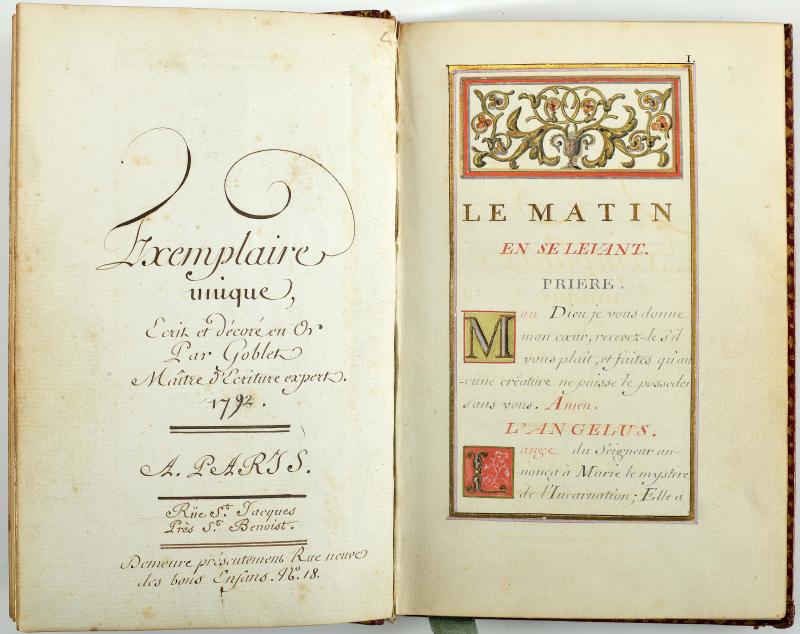 Exemplaire
unique,
Ecrit et décoré en Or
Par Goblet
Maître d'Ecriture expert.
1792.
A. PARIS.
Rüe St. Jacques
Près St. Benoist.
Demeure présentement Rue neuve
des bons Enfans. No. 18.
1.
LE MATIN
EN SE LEVANT.
PRIERE.
Mon Dieu je vous donne
mon cœur, recevez-le s'il
vous plaît, et faites qu'au
-cune créature ne puisse le posseder
sans vous. Amen.
L'ANGELUS.
Lange du Seigneur an-
nonça à Marie le mystère
de l'Incarnation; Elle a